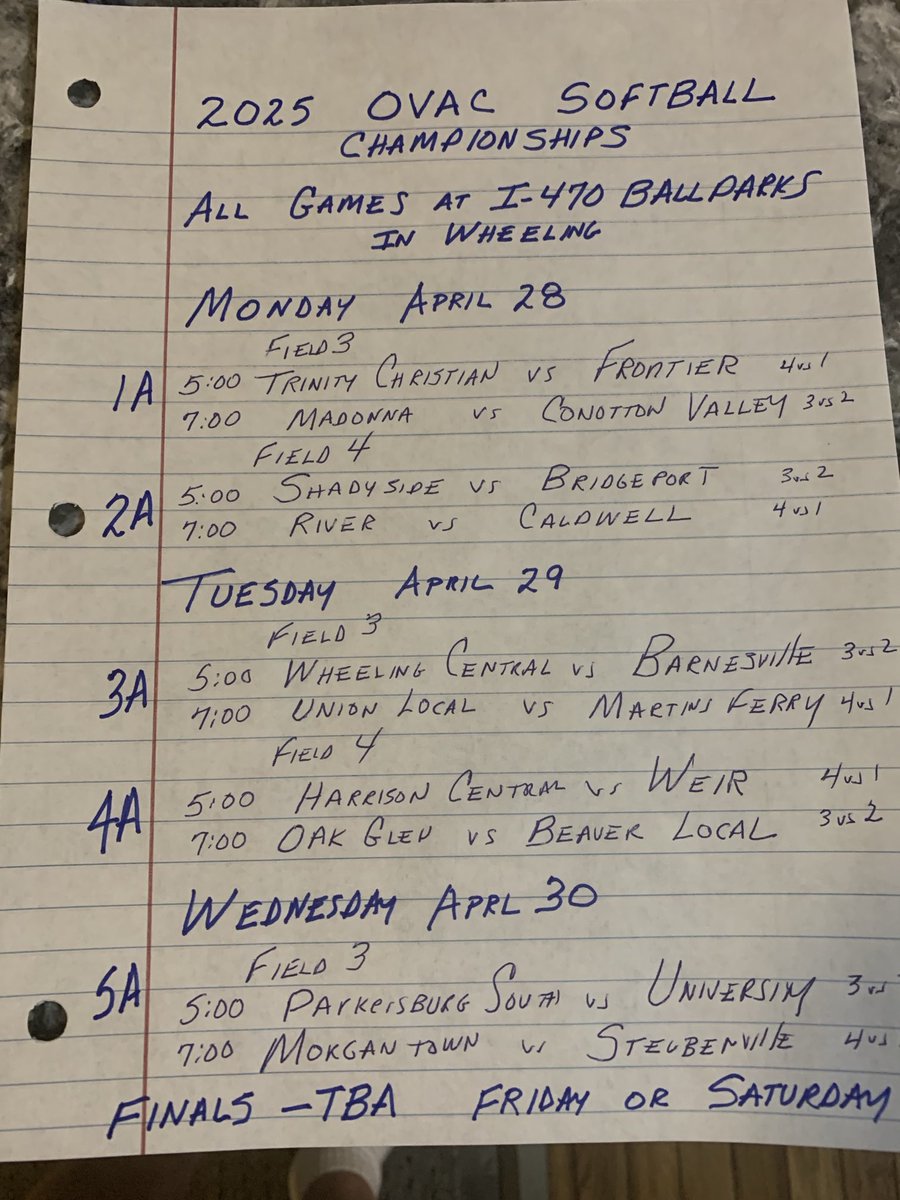 2025 OVAC SOFTBALL
CHAMPIONSHIPS
ALL GAMES AT I-470 BALLPARKS
IN WHEELING
MONDAY APRIL 28
FIELD 3
1A 5:00 TRINITY CHRISTIAN VS FRONTIER 4 vs 1
7:00 MADONNA VS CONOTTON VALLEY 3 vs 2
FIELD 4
2A 5:00 SHADYSIDE VS BRIDGEPORT 3 vs 2
7:00 RIVER VS CALDWELL 4 vs 1
TUESDAY APRIL 29
FIELD 3
3A 5:00 WHEELING CENTRAL VS BARNESVILLE 3 vs 2
7:00 UNION LOCAL VS MARTINS FERRY 4 vs 1
FIELD 4
4A 5:00 HARRISON CENTRAL VS WEIR 4 vs 1
7:00 OAK GLEN VS BEAVER LOCAL 3 vs 2
WEDNESDAY APRL 30
FIELD 3
5A 5:00 PARKERSBURG SOUTH VS UNIVERSITY 3 vs
7:00 MORGANTOWN VS STEUBENVILLE 4 vs
FINALS - TBA FRIDAY OR SATURDAY